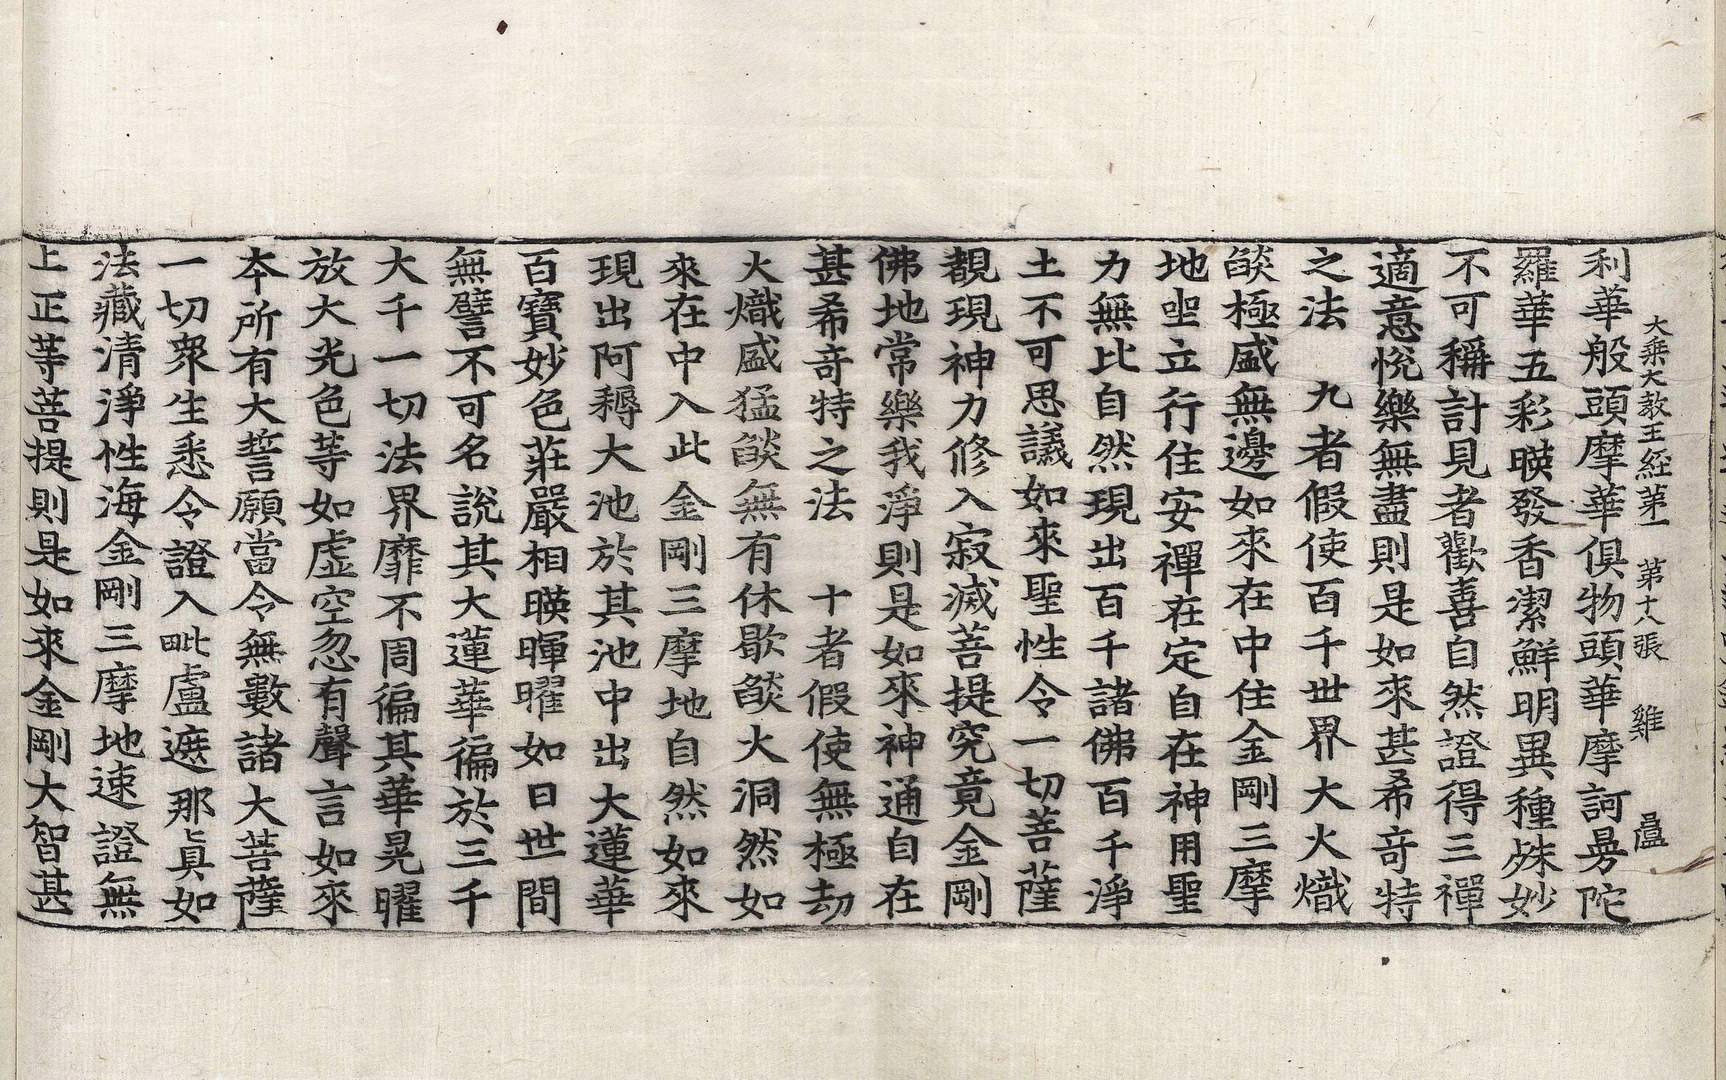 大乗大教王経第一　第十八張　雞　𥁊
利華般頭摩華俱物頭華摩訶曼陀
羅華五彩暎發香潔鮮明異種殊妙
不可稱計見者歡喜自然證得三禪
適意悅樂無盡則是如來甚希竒特
之法　九者假使百千世界大火熾
燄極盛無邊如來在中住金剛三摩
地坐立行住安禪在定自在神用聖
力無比自然現出百千諸佛百千淨
土不可思議如來聖性令一切菩薩
覩現神力修入寂滅菩提究竟金剛
佛地常樂我淨則是如來神通自在
甚希竒特之法　十者假使無極劫
火熾盛猛燄無有休歇燄火洞然如
來在中入此金剛三摩地自然如來
現出阿耨大池於其池中出大蓮華
百寶妙色莊嚴相暎暉曜如日世間
無譬不可名說其大蓮華徧於三千
大千一切法界靡不周徧其華晃曜
放大光色等如虛空忽有聲言如來
本所有大誓願當令無數諸大菩薩
一切衆生悉令證入毗盧遮那眞如
法藏清淨性海金剛三摩地速證無
上正等菩提則是如來金剛大智甚